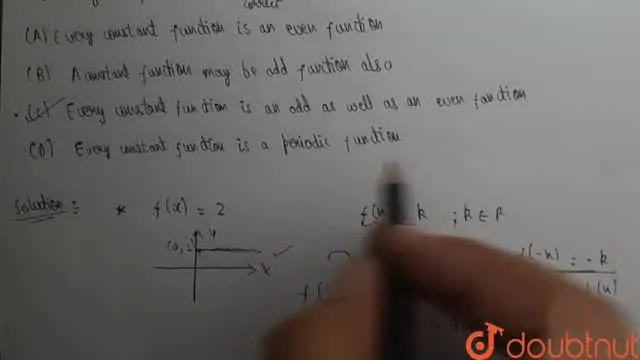 correct
(A) Every constant function is an even function
(B) A constant function may be odd function also
(C) Every constant function is an odd as well as an even function
(D) Every constant function is a periodic function
Solution :
* f(x) = 2
k ; k ∈ R
y
x
(-x) = - k
doubtnut